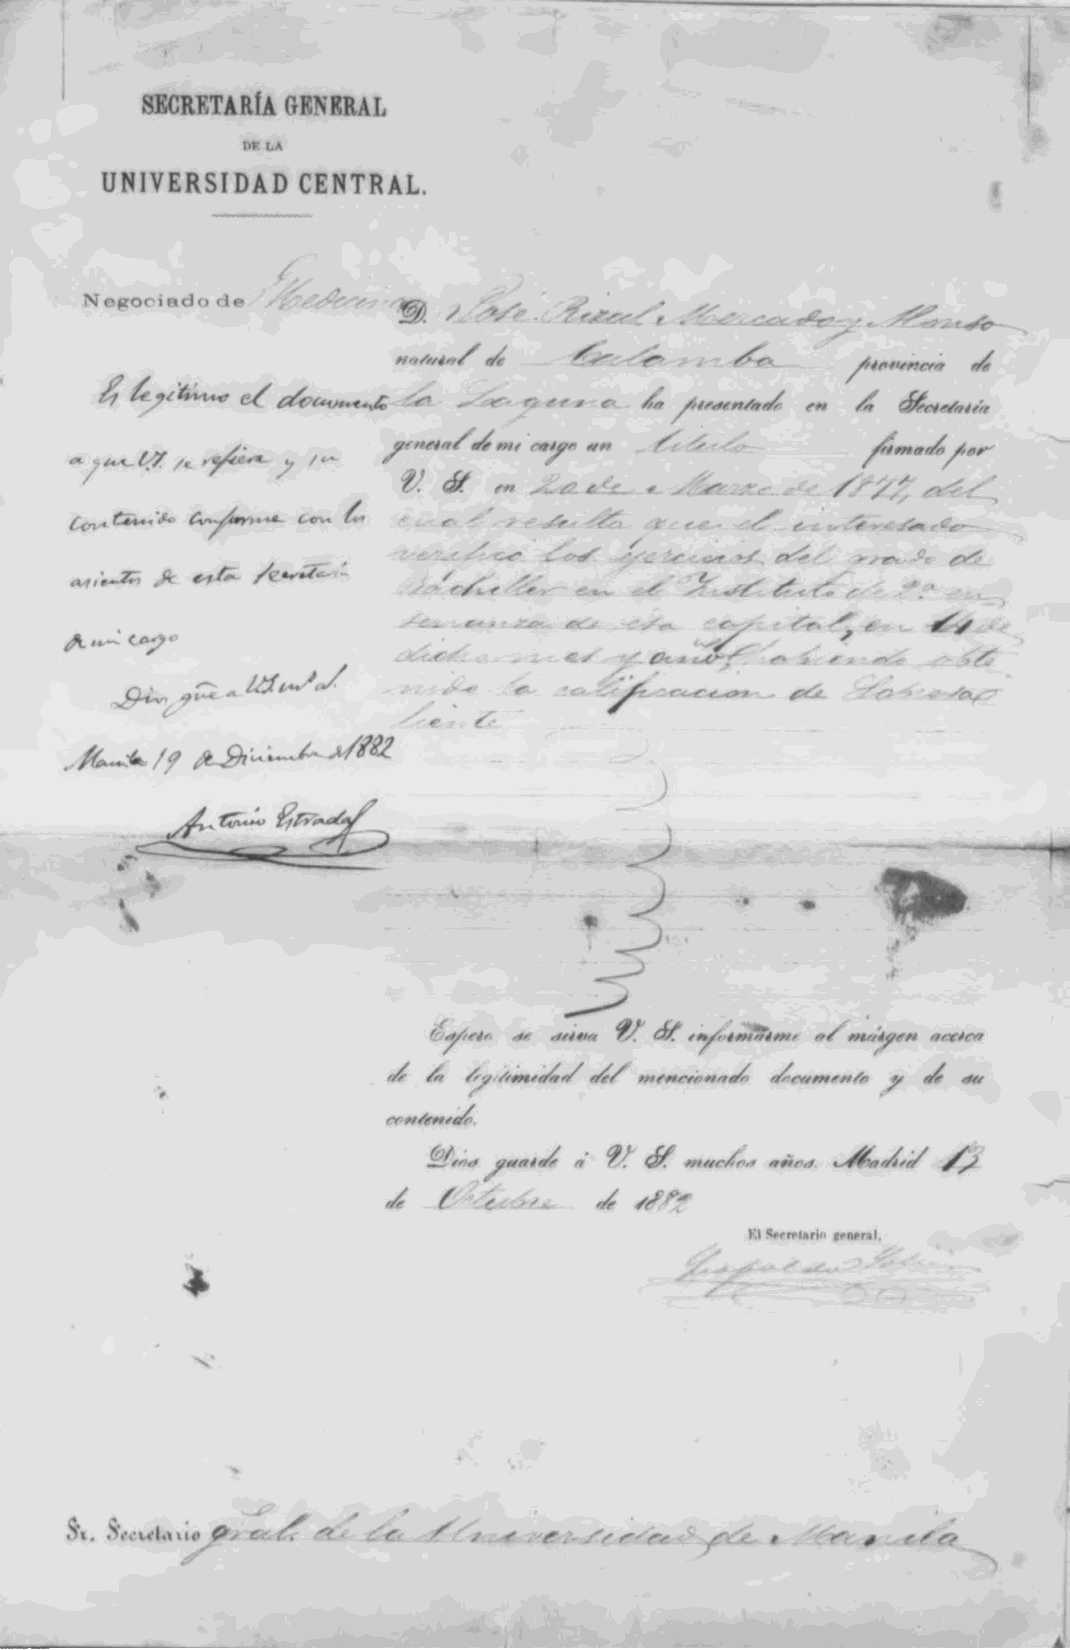 SECRETARÍA GENERAL
DE LA
UNIVERSIDAD CENTRAL.
Negociado de Medicina
D. José Rizal Mercado y Alonso
natural de Calamba provincia de
la Laguna ha presentado en la Secretaría
general de mi cargo un título firmado por
V. S. en 20 de Marzo de 1877, del
cual resulta que el interesado
verificó los ejercicios del grado de
Bachiller en el Instituto de 2ª en
senanza de esa capital, en 14 de
dicho mes y año, habiendo obte
nido la calificacion de Sobresa
liente
Es legítimo el documento
a que V.S. se refiere y su
contenido conforme con los
asientos de esta Secretaría
de mi cargo
Dios gue a V.S. ms. as.
Manila 19 de Diciembre de 1882
Antonio Estrada
Espero se sirva V. S. informarme al márgen acerca
de la legitimidad del mencionado documento y de su
contenido.
Dios guarde á V. S. muchos años. Madrid 13
de Octubre de 1882
El Secretario general,
Leopoldo
Sr. Secretario gral. de la Universidad de Manila